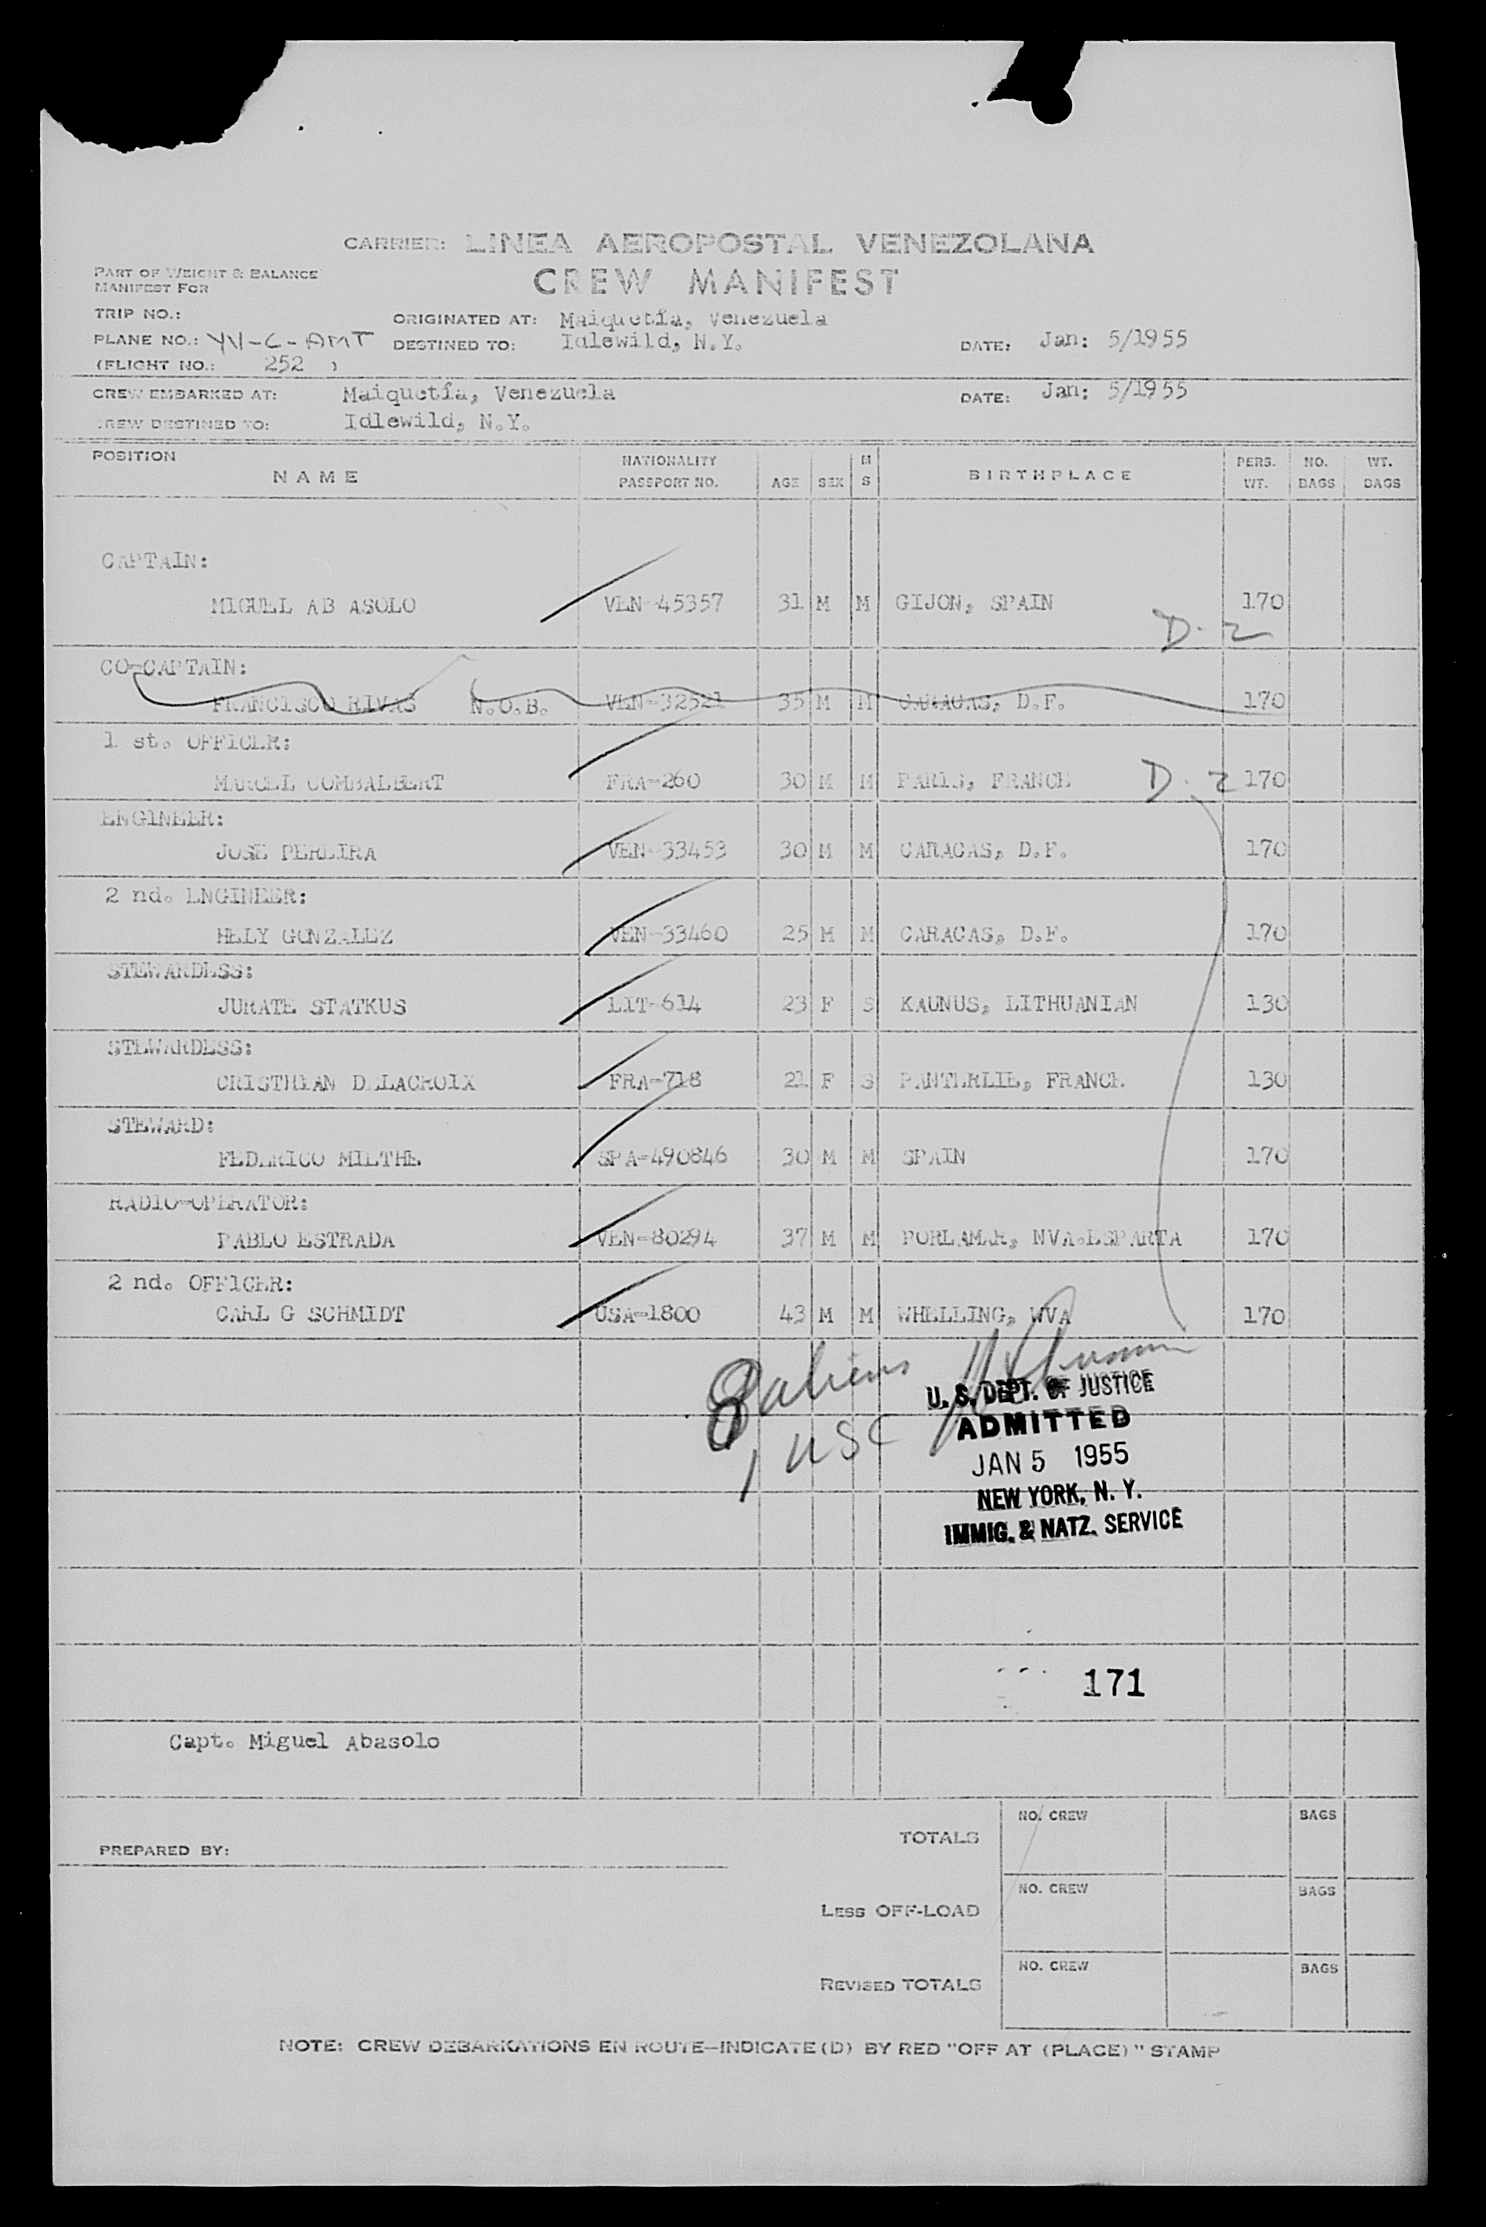 CARRIER: LINEA AEROPOSTAL VENEZOLANA
PART OF WEIGHT & BALANCE
MANIFEST FOR
CREW MANIFEST
TRIP NO.:
ORIGINATED AT: Maiquetía, Venezuela
PLANE NO.: YV-C-AMT DESTINED TO: Idlewild, N.Y. DATE: Jan: 5/1955
(FLIGHT NO.: 252 )
CREW EMBARKED AT: Maiquetía, Venezuela DATE: Jan: 5/1955
CREW DESTINED TO: Idlewild, N.Y.
POSITION NAME NATIONALITY PASSPORT NO. AGE SEX M S BIRTHPLACE PERS. WT. NO. BAGS WT. BAGS
CAPTAIN:
MIGUEL AB ASOLO VEN-45357 31 M M GIJON, SPAIN 170
D-2
CO-CAPTAIN:
FRANCISCO RIVAS N.O.B. VEN-32521 35 M M CARACAS, D.F. 170
1 st. OFFICER:
MARCEL COMBALBERT FRA-260 30 M M PARIS, FRANCE D-2 170
ENGINEER:
JOSE PEREIRA VEN-33453 30 M M CARACAS, D.F. 170
2 nd. ENGINEER:
HELY GONZALEZ VEN-33460 25 M M CARACAS, D.F. 170
STEWARDESS:
JURATE STATKUS LIT-614 23 F S KAUNUS, LITHUANIAN 130
STEWARDESS:
CRISTHIAN DELACROIX FRA-718 21 F S PANTERLIE, FRANCE 130
STEWARD:
FEDERICO MILTHE SPA-490846 30 M M SPAIN 170
RADIO-OPERATOR:
PABLO ESTRADA VEN-80294 37 M M PORLAMAR, NVA.ESPARTA 170
2 nd. OFFICER:
CARL G SCHMIDT USA-1800 43 M M WHELLING, WVA 170
8 aliens
1 USC
U. S. DEPT. OF JUSTICE
ADMITTED
JAN 5 1955
NEW YORK, N. Y.
IMMIG. & NATZ. SERVICE
171
Capt. Miguel Abasolo
NO. CREW BAGS
TOTALS
PREPARED BY:
NO. CREW BAGS
LESS OFF-LOAD
NO. CREW BAGS
REVISED TOTALS
NOTE: CREW DEBARKATIONS EN ROUTE—INDICATE (D) BY RED "OFF AT (PLACE)" STAMP